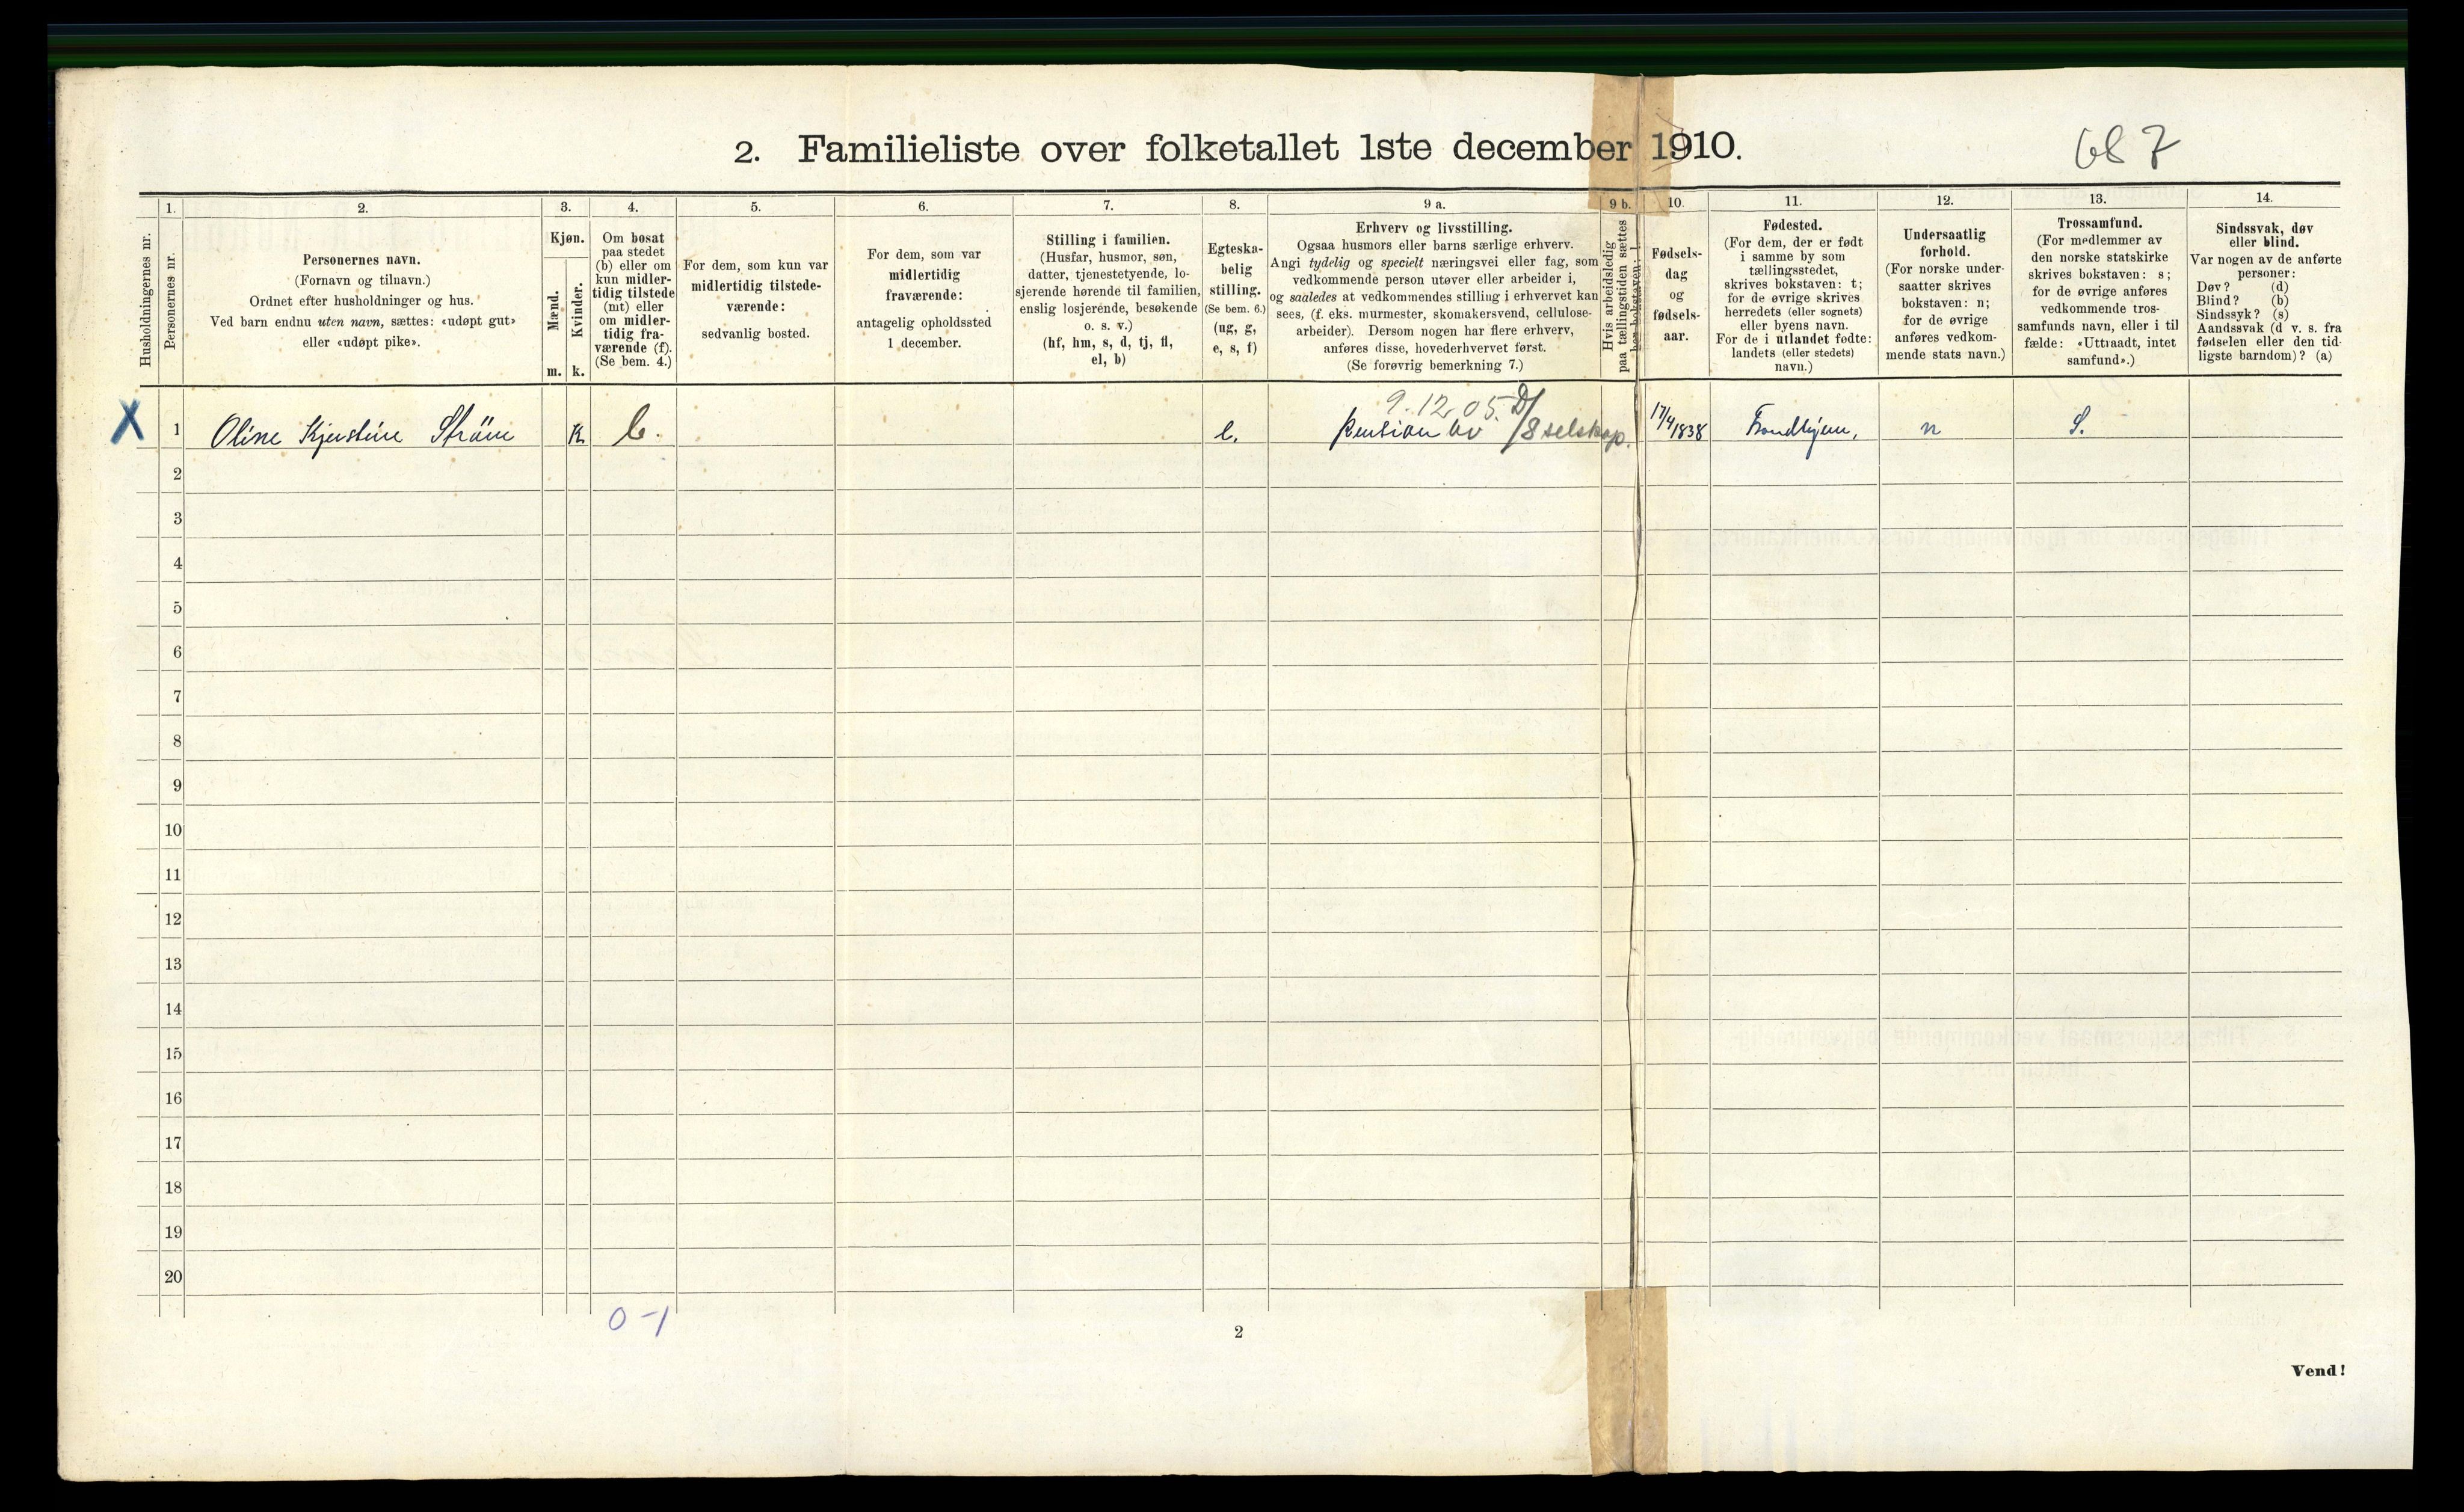 2. Familieliste over folketallet 1ste december 1910.
687
Husholdningernes nr.
1.
Personernes nr.
2.
Personernes navn.
(Fornavn og tilnavn.)
Ordnet efter husholdninger og hus.
Ved barn endnu uten navn, sættes: «udøpt gut»
eller «udøpt pike».
3.
Kjøn.
Mænd.
Kvinder.
m. k.
4.
Om bosat
paa stedet
(b) eller om
kun midler-
tidig tilstede
(mt) eller
om midler-
tidig fra-
værende (f).
(Se bem. 4.)
5.
For dem, som kun var
midlertidig tilstede-
værende:
sedvanlig bosted.
6.
For dem, som var
midlertidig
fraværende:
antagelig opholdssted
1 december.
7.
Stilling i familien.
(Husfar, husmor, søn,
datter, tjenestetyende, lo-
sjerende hørende til familien,
enslig losjerende, besøkende
o. s. v.)
(hf, hm, s, d, tj, fl,
el, b)
8.
Egteska-
belig
stilling.
(Se bem. 6.)
(ug, g,
e, s, f)
9 a.
Erhverv og livsstilling.
Ogsaa husmors eller barns særlige erhverv.
Angi tydelig og specielt næringsvei eller fag, som
vedkommende person utøver eller arbeider i,
og saaledes at vedkommendes stilling i erhvervet kan
sees, (f. eks. murmester, skomakersvend, cellulose-
arbeider). Dersom nogen har flere erhverv,
anføres disse, hovederhvervet først.
(Se forøvrig bemerkning 7.)
9 b.
Hvis arbeidsledig
paa tællingstiden sættes
her bokstaven: l
10.
Fødsels-
dag
og
fødsels-
aar.
11.
Fødested.
(For dem, der er født
i samme by som
tællingsstedet,
skrives bokstaven: t;
for de øvrige skrives
herredets (eller sognets)
eller byens navn.
For de i utlandet fødte:
landets (eller stedets)
navn.)
12.
Undersaatlig
forhold.
(For norske under-
saatter skrives
bokstaven: n;
for de øvrige
anføres vedkom-
mende stats navn.)
13.
Trossamfund.
(For medlemmer av
den norske statskirke
skrives bokstaven: s;
for de øvrige anføres
vedkommende tros-
samfunds navn, eller i til
fælde: «Uttraadt, intet
samfund».)
14.
Sindssvak, døv
eller blind.
Var nogen av de anførte
personer:
Døv? (d)
Blind? (b)
Sindssyk? (s)
Aandssvak (d v. s. fra
fødselen eller den tid-
ligste barndom)? (a)
9.12.05.
X 1 Oline Kjerstine Strøm K b. e. Pension av D/S selskap. 17/4 1838 Trondhjem, n S.
2
3
4
5
6
7
8
9
10
11
12
13
14
15
16
17
18
19
20
0-1
2
Vend!